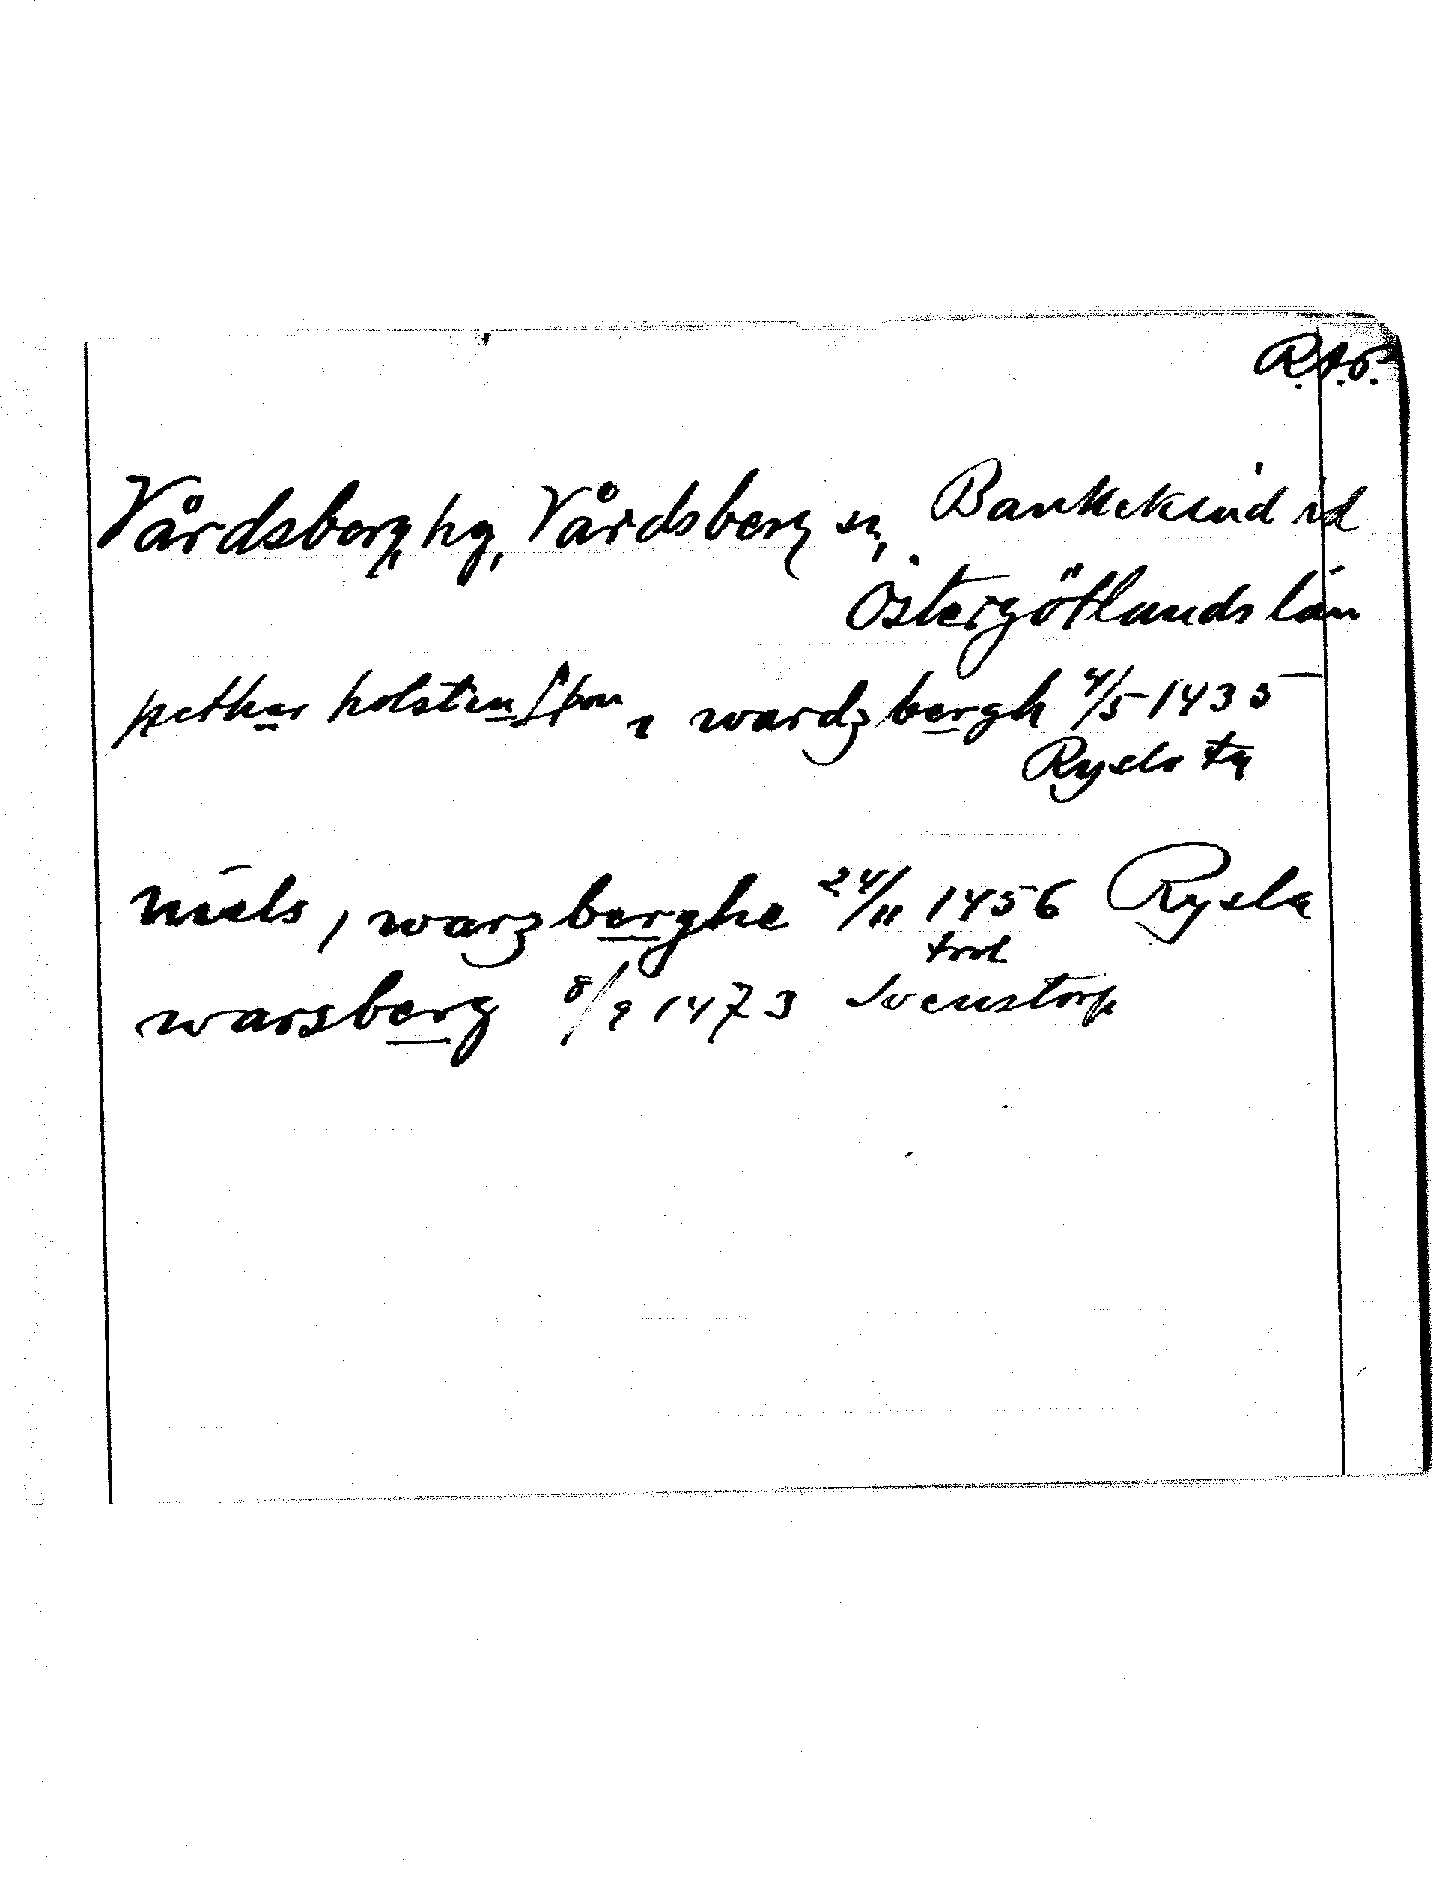 R.A.P.
Vårdsberg, hg, Vårdsberg sn, Bankekind hd
Östergötlands län
pethar holstensson ı wardzbergh 4/5 1435
Ryslo ta
niels, warzberghe 24/11 1456 Rysla
warsberg 8/9 1473 Svenstorp